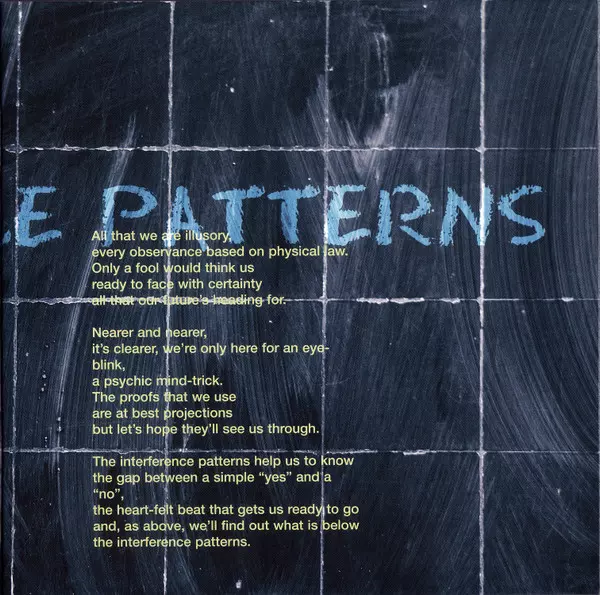 E PATTERNS
All that we are illusory,
every observance based on physical law.
Only a fool would think us
ready to face with certainty
all that our future's heading for.
Nearer and nearer,
it's clearer, we're only here for an eye-
blink,
a psychic mind-trick.
The proofs that we use
are at best projections
but let's hope they'll see us through.
The interference patterns help us to know
the gap between a simple “yes” and a
“no”,
the heart-felt beat that gets us ready to go
and, as above, we'll find out what is below
the interference patterns.